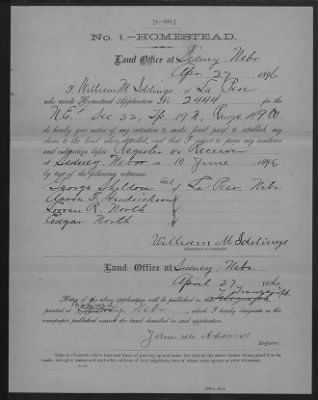 [4-348.]
No. 1.—HOMESTEAD.
Land Office at Sidney, Nebr
Apr. 27, 1896
I, William M. Iddings, of La Peer
who made Homestead Application No. 2444 for the
N.E. Sec 32, Tp 19 N, Range 49 W.
do hereby give notice of my intention to make final proof to establish my
claim to the land above described, and that I expect to prove my residence
and cultivation before Register or Receiver
at Sidney, Nebr on 10 June, 1896
by two of the following witnesses:
George Sheldon all of La Peer, Nebr.
Aaron F. Hendrickson
Loran R. North
Edgar North
William M. Iddings
(Signature of Claimant.)
Land Office at Sidney, Nebr.
April 27, 1896
Notice of the above application will be published in the
printed at Nebr., which I hereby designate as the
newspaper published nearest the land described in said application.
John M. Adams
Register.
Notice to Claimant.—Give time and place of proving up and name the title of the officer before whom proof is to be
made; also give names and post office address of four neighbors, two of whom must appear as your witnesses.